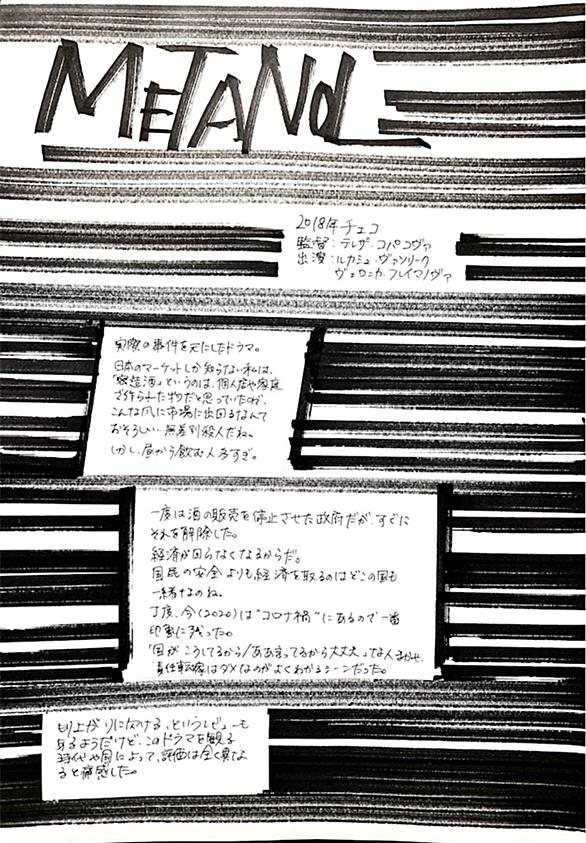 METANOL
2018年チェコ
監督：テレザ・コパコヴァ
出演：ルカシュ・ヴァツリーク
ヴェロニカ・フレイマノヴァ
実際の事件を元にしたドラマ。
日本のマーケットしか知らない私は、
「密造酒」というのは、個人店や家庭
で作られた物だと思っていたので、
こんな風に市場に出回るなんて
おそろしい…無差別殺人だね。
しかし、昼から飲む人多すぎ。
一度は酒の販売を停止させた政府だが、すぐに
それを解除した。
経済が回らなくなるからだ。
国民の安全よりも経済を取るのはどこの国も
一緒なのね。
丁度、今(2020)は"コロナ禍"にあるので一番
印象に残った。
「国がこうしてるから/ああ言ってるから大丈夫」って人まかせ、
責任転嫁はダメなのがよくわかるシーンだった。
盛り上がりに欠ける、というレビューも
あるようだけど、このドラマを観る
時代や国によって、評価は全く異な
ると痛感した。